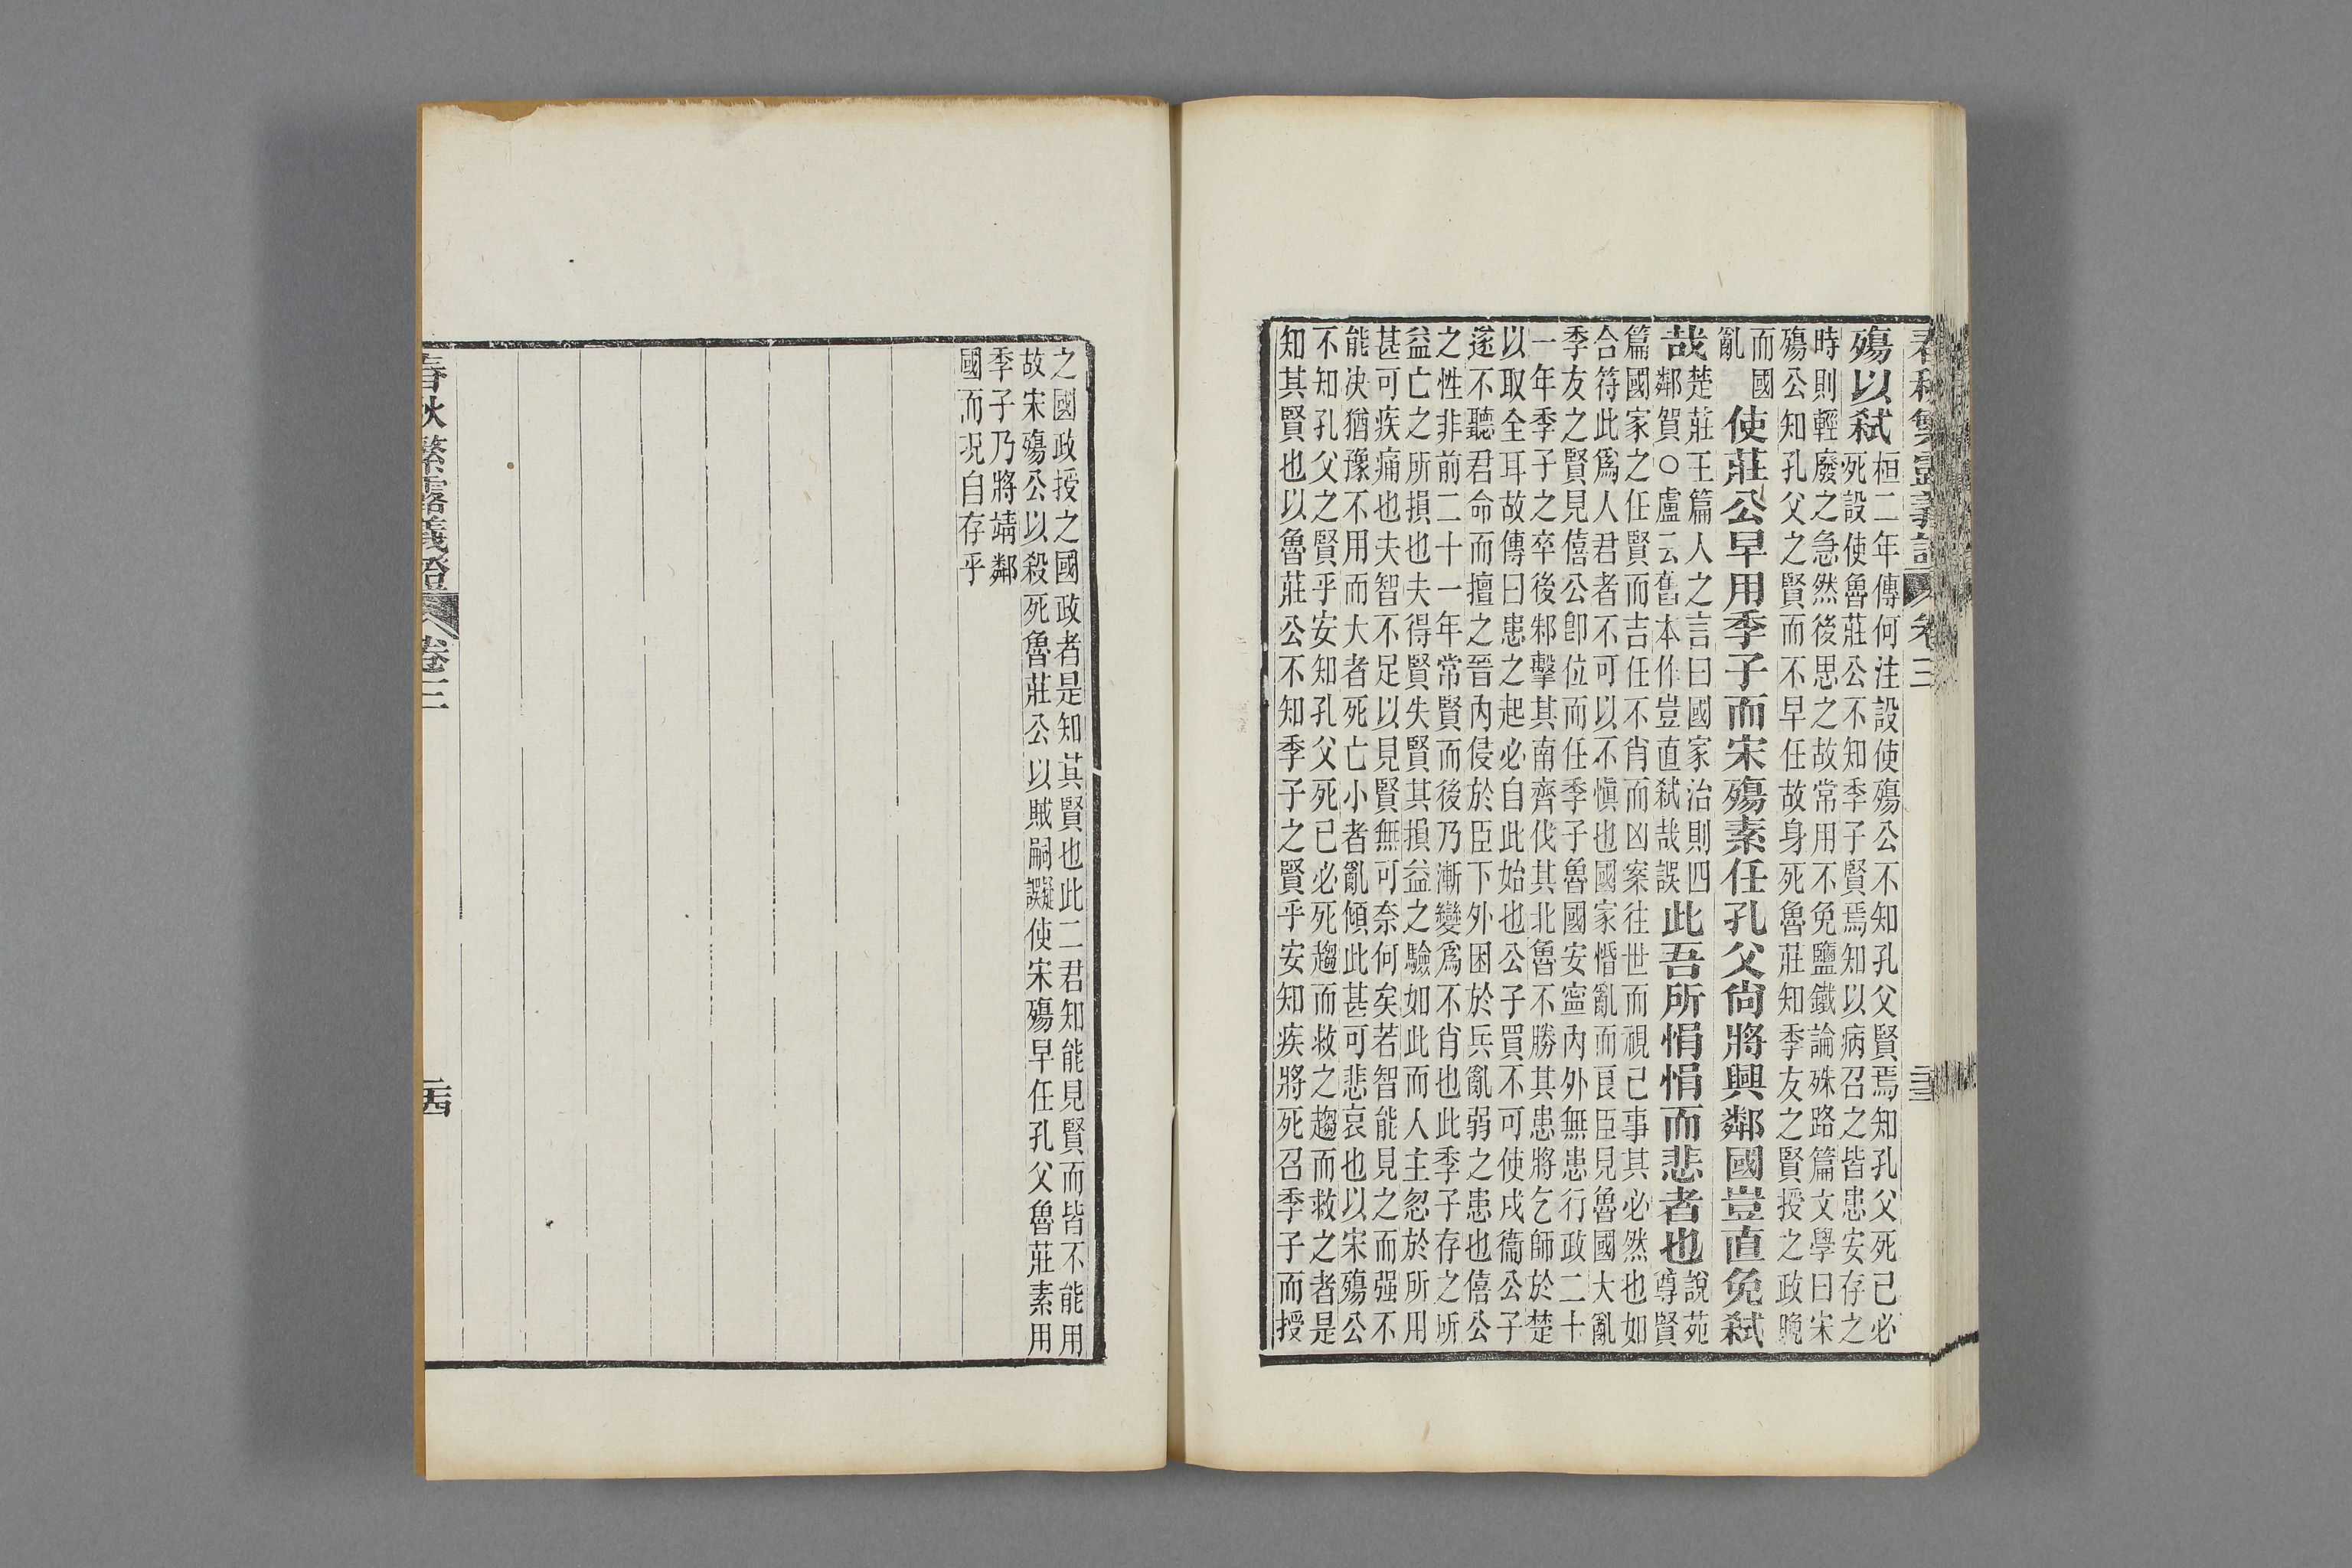 春秋繁露義證 卷三 二三
殤以弒
桓二年傳何注設使殤公不知孔父賢焉知孔父死己必
死設使魯莊公不知季子賢焉知以病召之皆患安存之
時則輕廢之急然後思之故常用不免鹽鐵論殊路篇文學曰宋
殤公知孔父之賢而不早任故身死魯莊知季友之賢授之政晚
而國
亂
使莊公早用季子而宋殤素任孔父尙將興鄰國豈直免弒
哉
楚莊王篇人之言曰國家治則四
鄰賀○盧云舊本作豈直弒哉誤
此吾所悁悁而悲者也
說苑
尊賢
篇國家之任賢而吉任不肖而凶案往世而視己事其必然也如
合符此爲人君者不可以不愼也國家惛亂而良臣見魯國大亂
季友之賢見僖公卽位而任季子魯國安寍內外無患行政二十
一年季子之卒後邾擊其南齊伐其北魯不勝其患將乞師於楚
以取全耳故傳曰患之起必自此始也公子買不可使戍衞公子
遂不聽君命而擅之晉內侵於臣下外困於兵亂弱之患也僖公
之性非前二十一年常賢而後乃漸變爲不肖也此季子存之所
益亡之所損也夫得賢失賢其損益之驗如此而人主忽於所用
甚可疾痛也夫智不足以見賢無可奈何矣若智能見之而强不
能决猶豫不用而大者死亡小者亂傾此甚可悲哀也以宋殤公
不知孔父之賢乎安知孔父死己必死趨而救之趨而救之者是
知其賢也以魯莊公不知季子之賢乎安知疾將死召季子而授
之國政授之國政者是知其賢也此二君知能見賢而皆不能用
故宋殤公以殺死魯莊公以賊嗣疑誤使宋殤早任孔父魯莊素用
季子乃將靖鄰
國而况自存乎
春秋繁露義證 卷三 二四